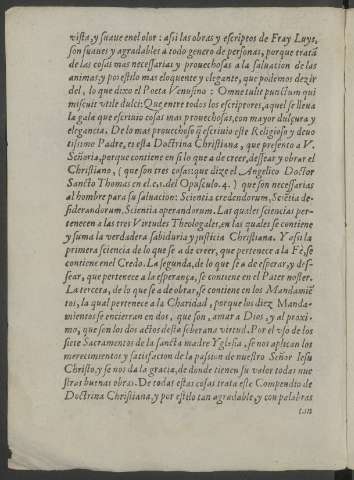 vista, y suaue en el olor: assi las obras y escriptos de Fray Luys,
son suaues y agradables a todo genero de personas, porque tratã
de las cosas mas necessarias y prouechosas a la saluacion de las
animas: y por estilo mas eloquente y elegante, que podemos dezir
del, lo que dixo el Poeta Venusino: Omne tulit punctum qui
miscuit vtile dulci: Que entre todos los escriptores, aquel se lleua
la gala que escriuio cosas mas prouechosas, con mayor dulçura y
elegancia. De lo mas prouechoso q̃ escriuio este Religioso y deuo
tissimo Padre, es esta Doctrina Christiana, que presento a V.
Señoria, porque contiene en si lo que a de creer, dessear y obrar el
Christiano, ( que son tres cosas: que dize el Angelico Doctor
Sancto Thomas en el.c.1.del Opusculo.4. ) que son necessarias
al hombre para su saluacion: Scientia credendorum, Sciẽtia de-
siderandorum, Scientia operandorum. Las quales sciencias per-
tenecen a las tres Virtudes Theologales, en las quales se contiene
y suma la verdadera sabiduria y justicia Christiana. Y assi la
primera sciencia de lo que se a de creer, que pertenece a la Fè, se
contiene en el Credo. La segunda, de lo que se a de esperar, y des-
sear, que pertenece a la esperança, se contiene en el Pater noster.
La tercera, de lo que se a de obrar, se contiene en los Mandamiẽ
tos, la qual pertenece a la Charidad, porque los diez Manda-
mientos se encierran en dos, que son, amar a Dios, y al proxi-
mo, que son los dos actos desta soberana virtud. Por el vso de los
siete Sacramentos de la sancta madre Yglesia, se nos aplican los
merecimientos y satisfacion de la passion de nuestro Señor Iesu
Christo, y se nos da la gracia, de donde tienen su valor todas nue
stras buenas obras. De todas estas cosas trata este Compendio de
Doctrina Christiana, y por estilo tan agradable, y con palabras
tan